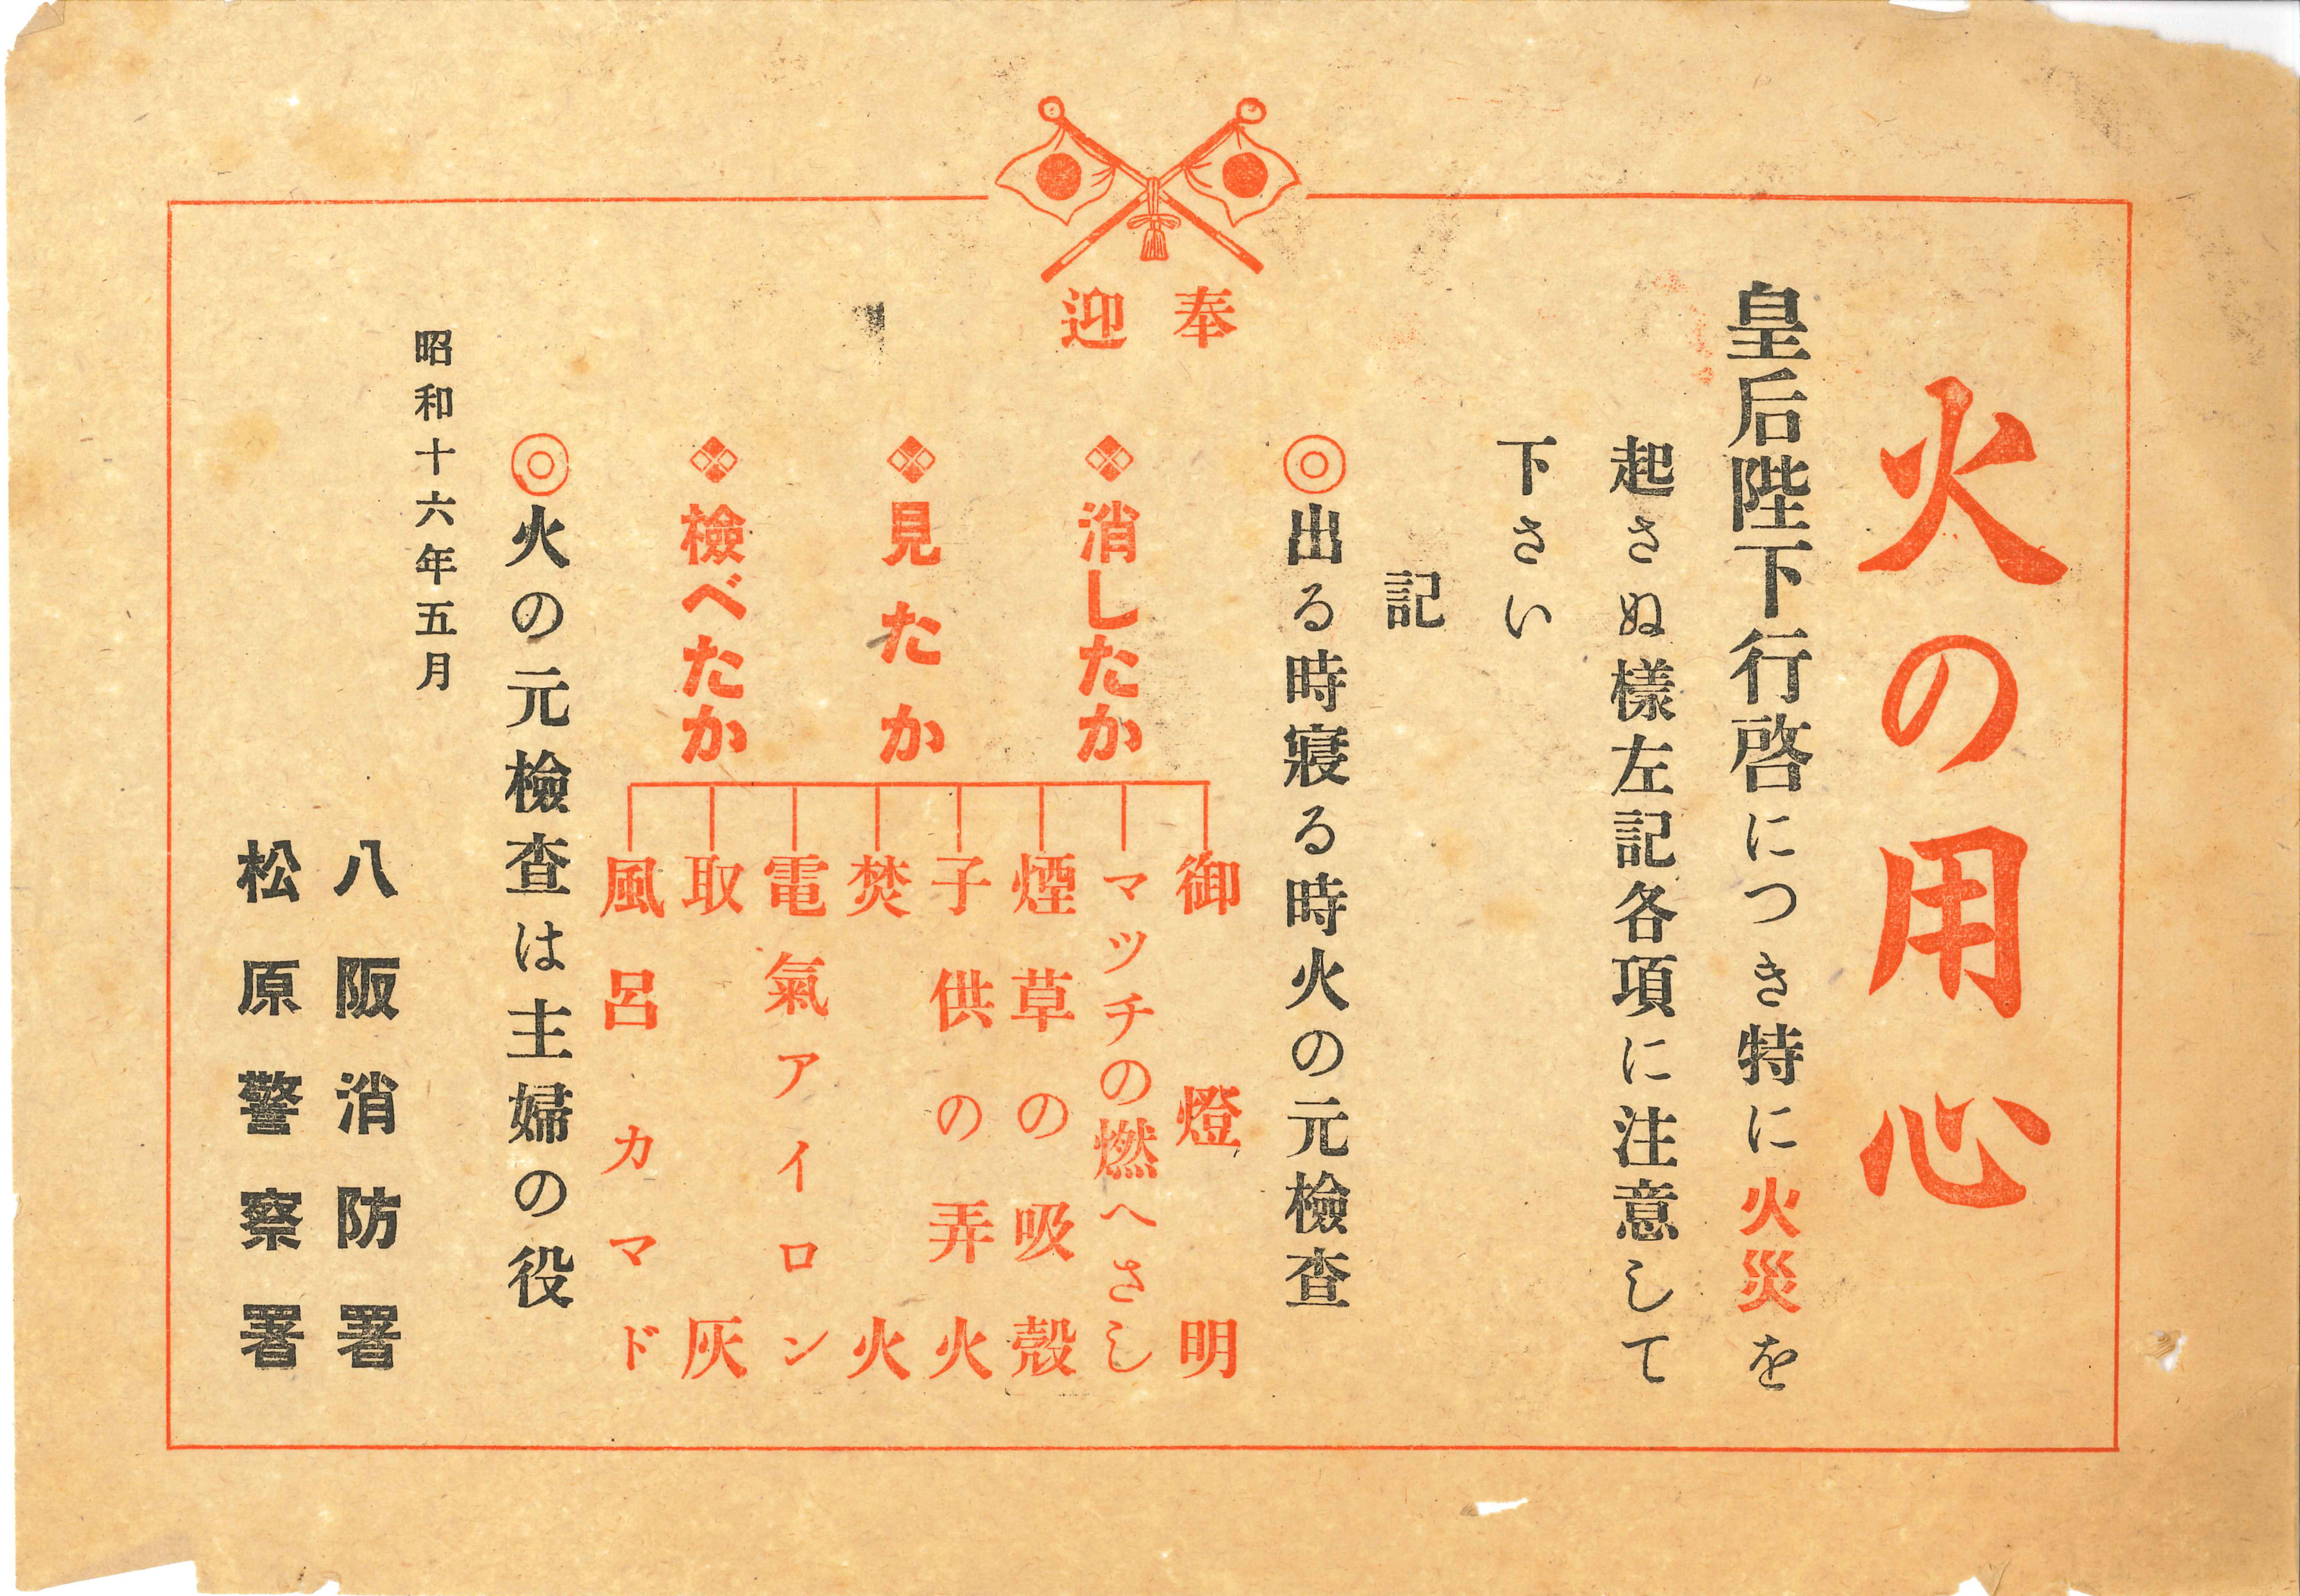 奉迎
火の用心
皇后陛下行啓につき特に火災を
起さぬ様左記各項に注意して
下さい
記
◎出る時寝る時火の元檢查
❖消したか
❖見たか
❖檢べたか
御燈明
マッチの燃へさし
煙草の吸殻
子供の弄火
焚火
電氣アイロン
取灰
風呂カマド
◎火の元檢查は主婦の役
昭和十六年五月
八阪消防署
松原警察署